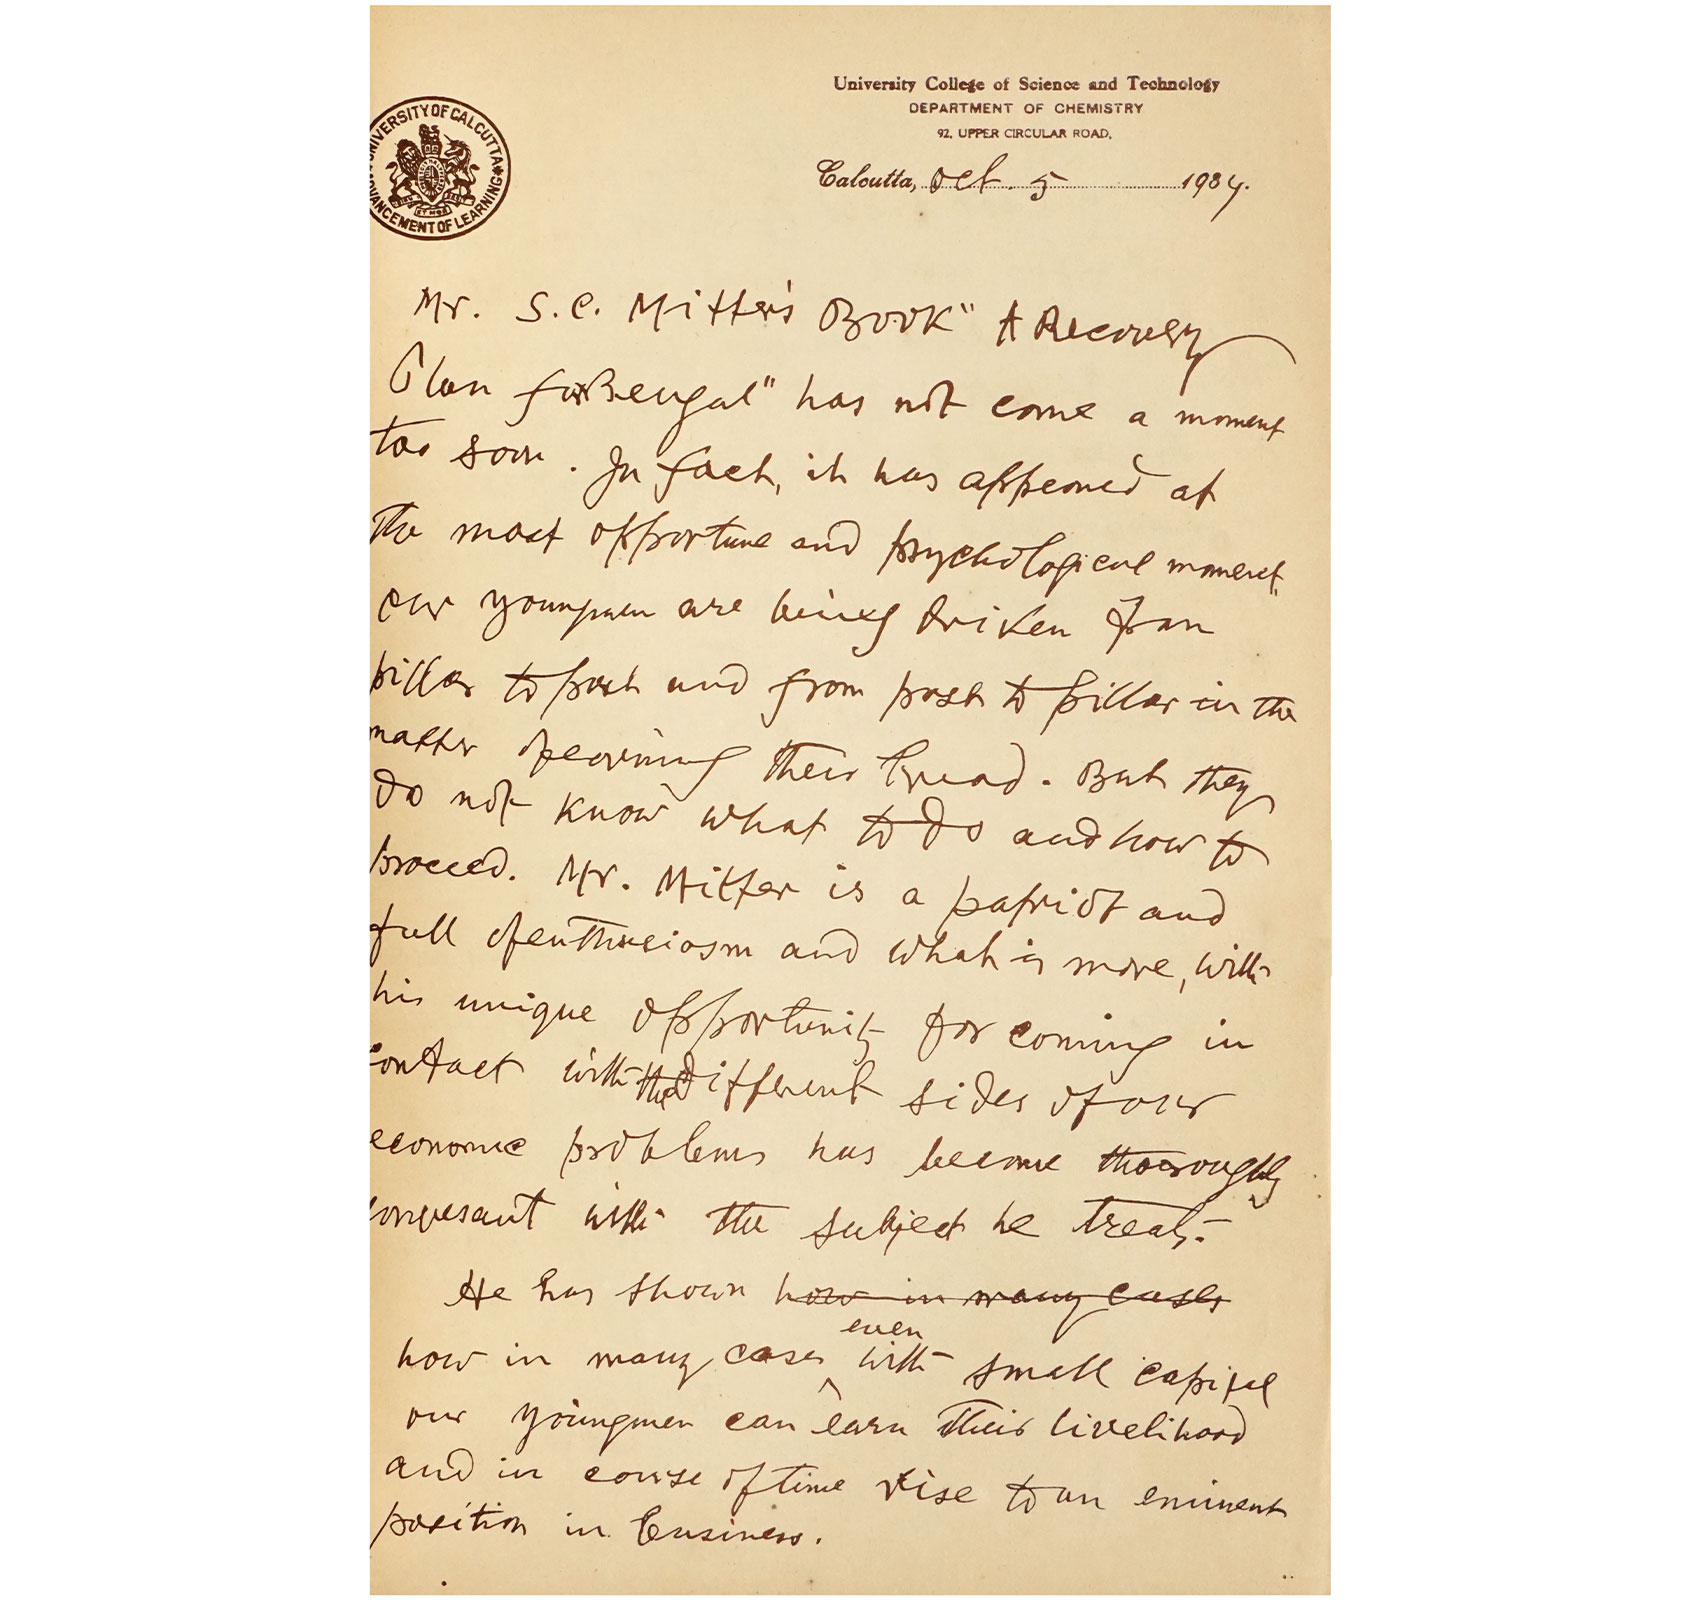 University College of Science and Technology
DEPARTMENT OF CHEMISTRY
92, UPPER CIRCULAR ROAD,
UNIVERSITY OF CALCUTTA
ADVANCEMENT OF LEARNING
Calcutta, Oct. 5 1934.
Mr. S.C. Mitter's Book "A Recovery
Plan for Bengal" has not come a moment
too soon. In fact, it has appeared at
the most opportune and psychological moment.
Our youngmen are being driven from
pillar to post and from post to pillar in the
matter of earning their bread. But they
do not know what to do and how to
proceed. Mr. Mitter is a patriot and
full of enthusiasm and what is more, with
his unique opportunity for coming in
contact with the different sides of our
economic problems has become thoroughly
conversant with the subject he treats.
He has shown how in many cases
even
how in many cases with small capital
our youngmen can earn their livelihood
and in course of time rise to an eminent
position in business.